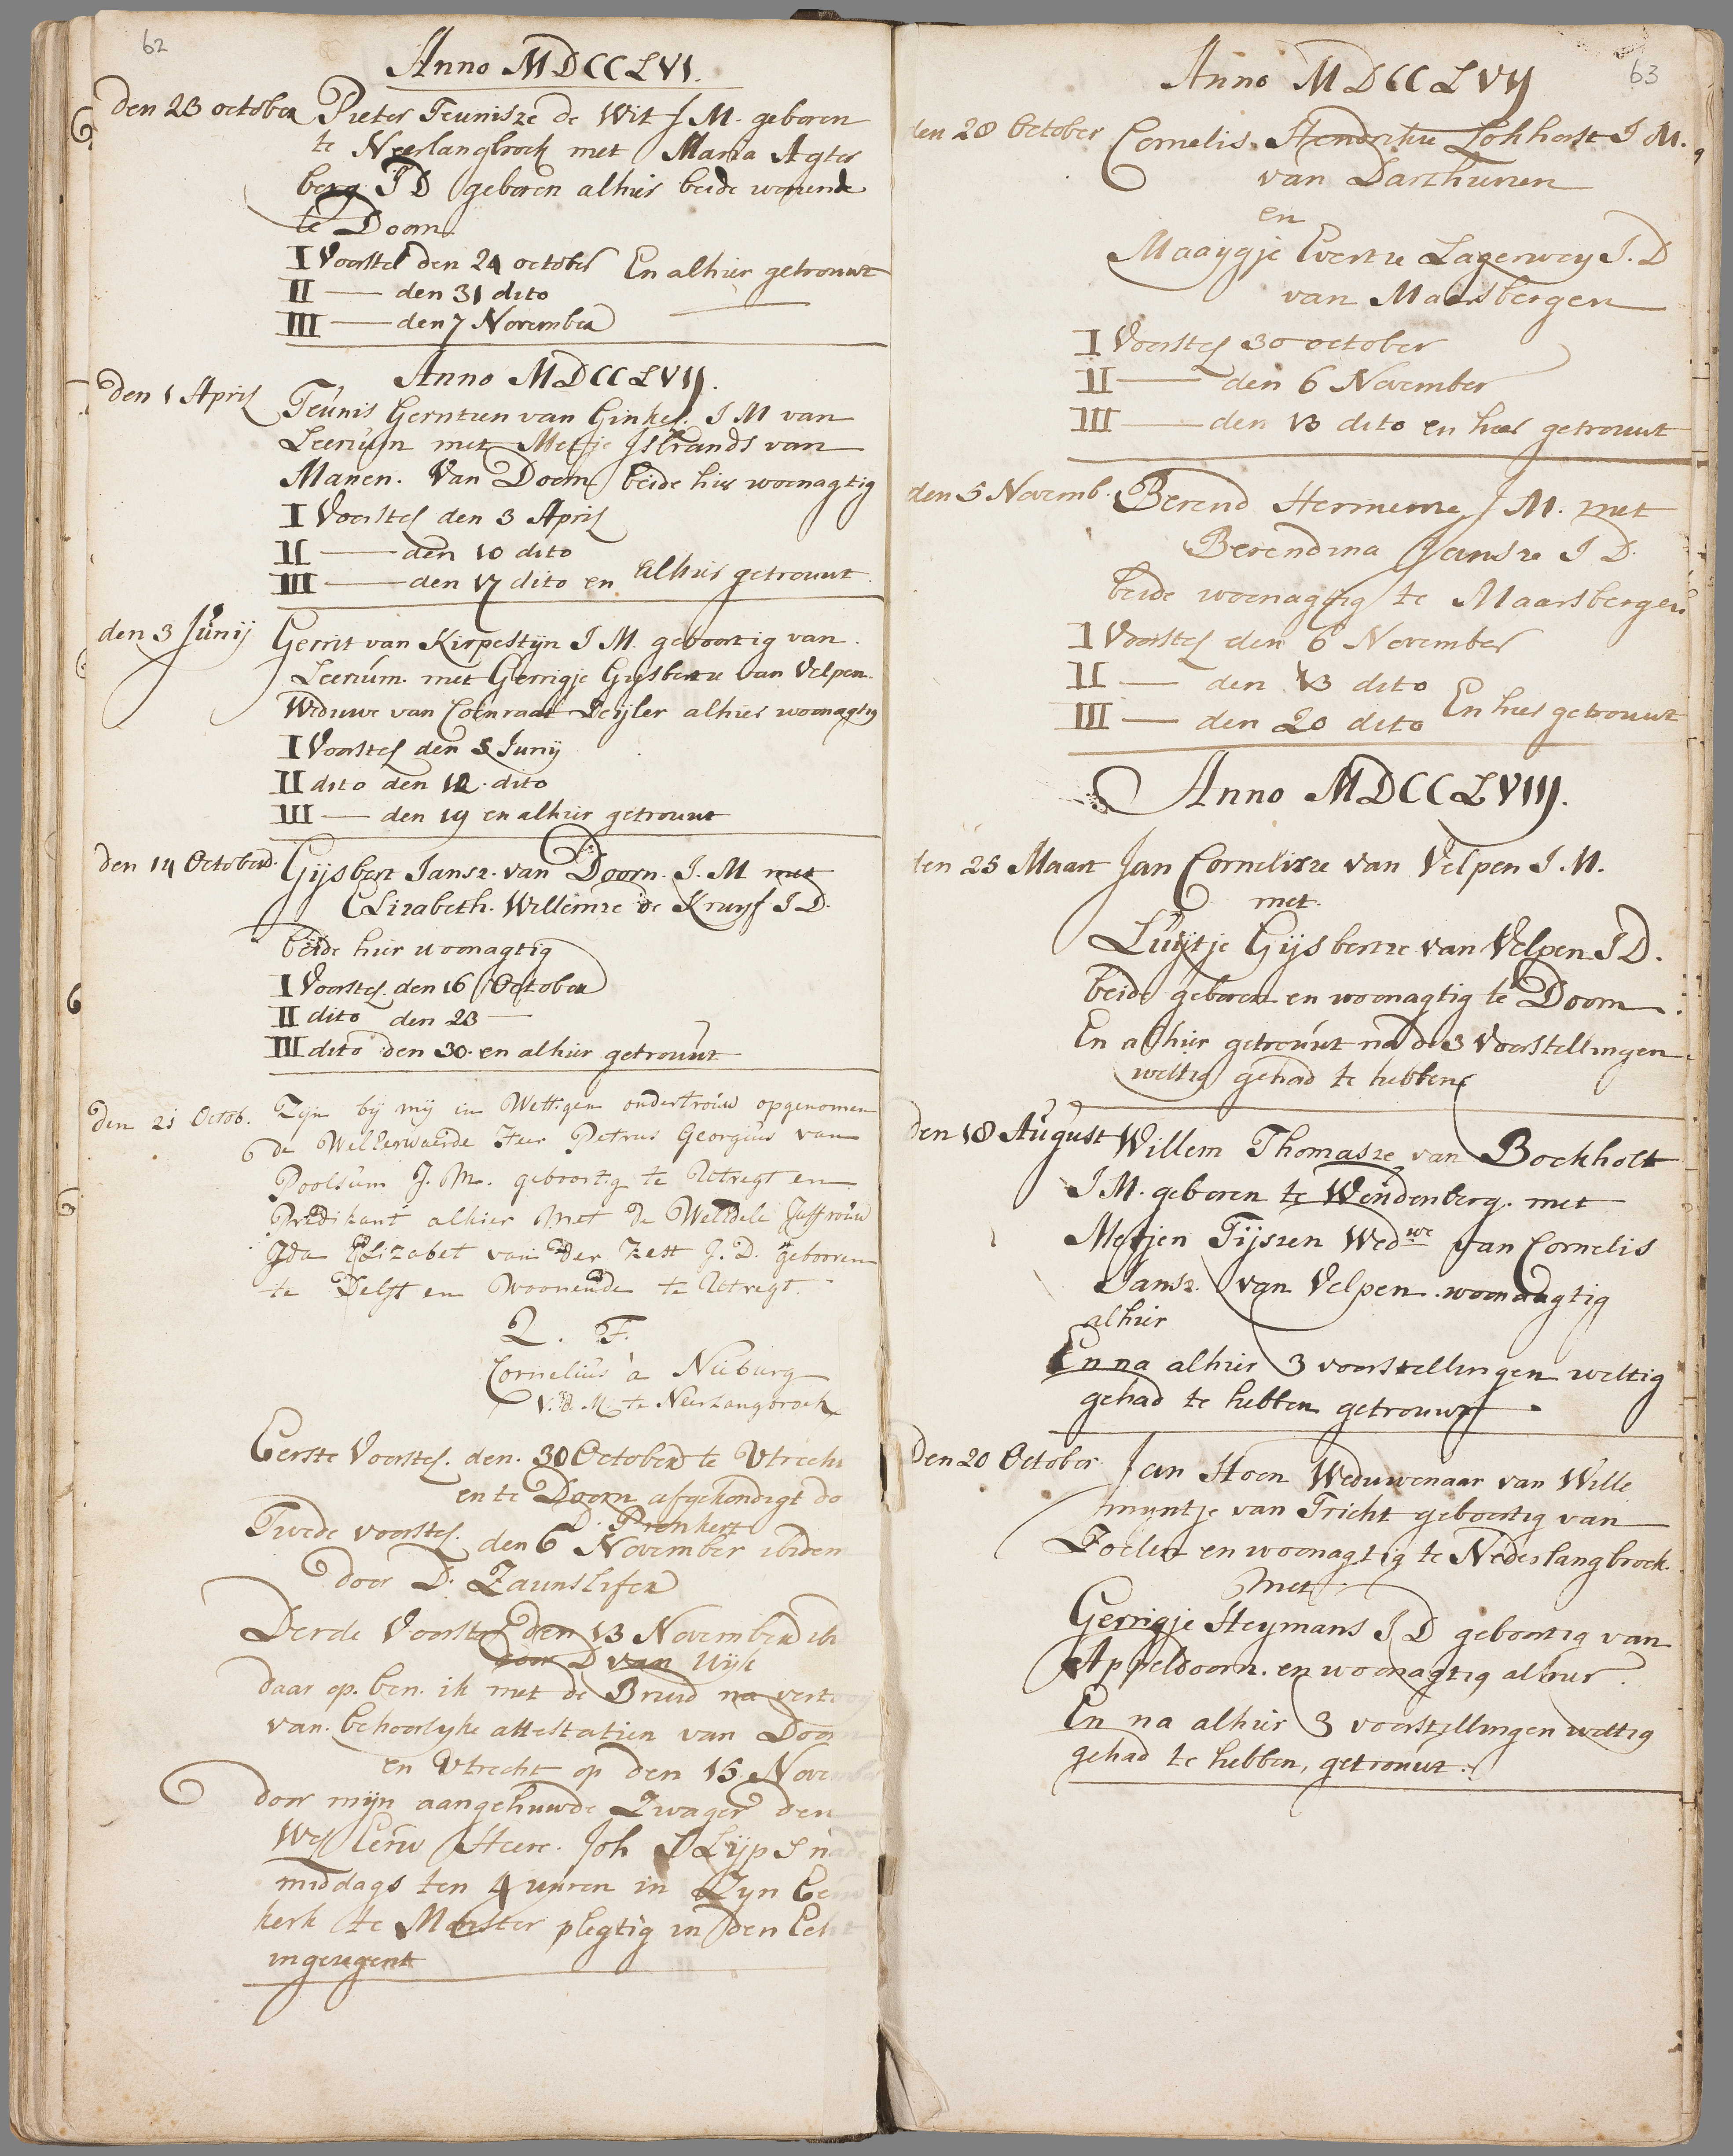 62
Anno MDCCLVI.
Den 23 october Pieter Teunisze de Wit J M. geboren
te Neerlangbroek met Maria Agter
berg JD geboren alhier beide wonende
te Doorn.
I Voorstel den 24 october En alhier getrouwt
II — den 31 dito
III — den 7 November
Anno MDCCLVIJ.
Den 1 April Teunis Gerritzen van Ginkel. J M van
Leersum met Metje Isbrands van
Manen. Van Doorn beide hier woonagtig
I Voorstel den 3 April
II — den 10 dito
III — den 17 dito en alhier getrouwt.
den 3 Junij Gerrit van Kirpestijn J M. geboortig van
Leersum. met Gerrigje Gijsbertze van Velpen.
Weduwe van Coenraat Leijler alhier woonagtig
I Voorstel den 5 Junij
II dito den 12. dito
III — den 19 en alhier getrouwt
Den 14 October. Gijsbert Jansz. van Doorn. J. M met
Elizabeth. Willemze de Kruijf J D.
beide hier woonagtig
I Voorstel. den 16 October
II dito den 23 —
III dito den 30. en alhier getrouwt
Den 21 Octob. Zijn bij mij in Wettigen ondertrouw opgenomen
de WelEerwaerde Heer Petrus Georgius van
Poolsum J. M. geboortig te Utregt en
Predikant alhier Met de WelEdele Juffrouw
Ida Elizabet van der Kest J. D. gebooren
te Delft en Woonende te Utregt.
Q. F.
Cornelius à Nieburg
V. D. M. te Neerlangbroek
Eerste Voorstel. den. 30 October te Utrecht
en te Doorn afgekondigt do
D. Pronkert
Twede voorstel. den 6 November ibidem
door D. Zaunslifer
Derde Voorstel den 13 November ib
door D van Wijk
daar op. ben. ik met de Bruid na vertoog
van. behoorlyke attestatien van Doorn
en Utrecht op den 15 November
door mijn aangehuwde Zwager den
Wel Eerw Heere. Joh S Lijp S nade
middags ten 4 uuren in Zyn Eerw
kerk te Monster plegtig in den Echt
ingezegent
63
Anno MDCCLVIJ
den 28 October Cornelis. Hendrikze Lokhorst J M.
van Darthuisen
en
Maaygje Evertze Lagerwey J. D
van Maarsbergen
I Voorstel 30 october
II — den 6 November
III — den 13 dito en hier getrouwt
den 5 Novemb. Berend Hermense J M. met
Berendina Jansze J D.
beide woonagtig te Maarsbergen
I Voorstel den 6 November
II — den 13 dito
III — den 20 dito En hier getrouwt
Anno MDCCLVIIJ.
den 25 Maart Jan Cornelisze van Velpen J. M.
met.
Luijtje Gijsbertze van Velpen J D.
beide geboren en woonagtig te Doorn
En alhier getrouwt na de 3 Voorstellingen
wettig gehad te hebben
den 18 August Willem Thomasze van Bockholt
J M. geboren te Wendenberg. met
Metjen Tijszen Wedwe van Cornelis
Jansz. van Velpen. woonagtig
alhier
En na alhier 3 voorstellingen wettig
gehad te hebben getrouwt.
Den 20 October Jan Hoen Weduwenaar van Wille
myntje van Tricht geboortig van
Zoelen en woonagtig te Nederlangbroek.
Met
Gerrigje Heymans J D geboortig van
Appeldoorn. en woonagtig alhier.
En na alhier 3 voorstellingen wettig
gehad te hebben, getrouwt.